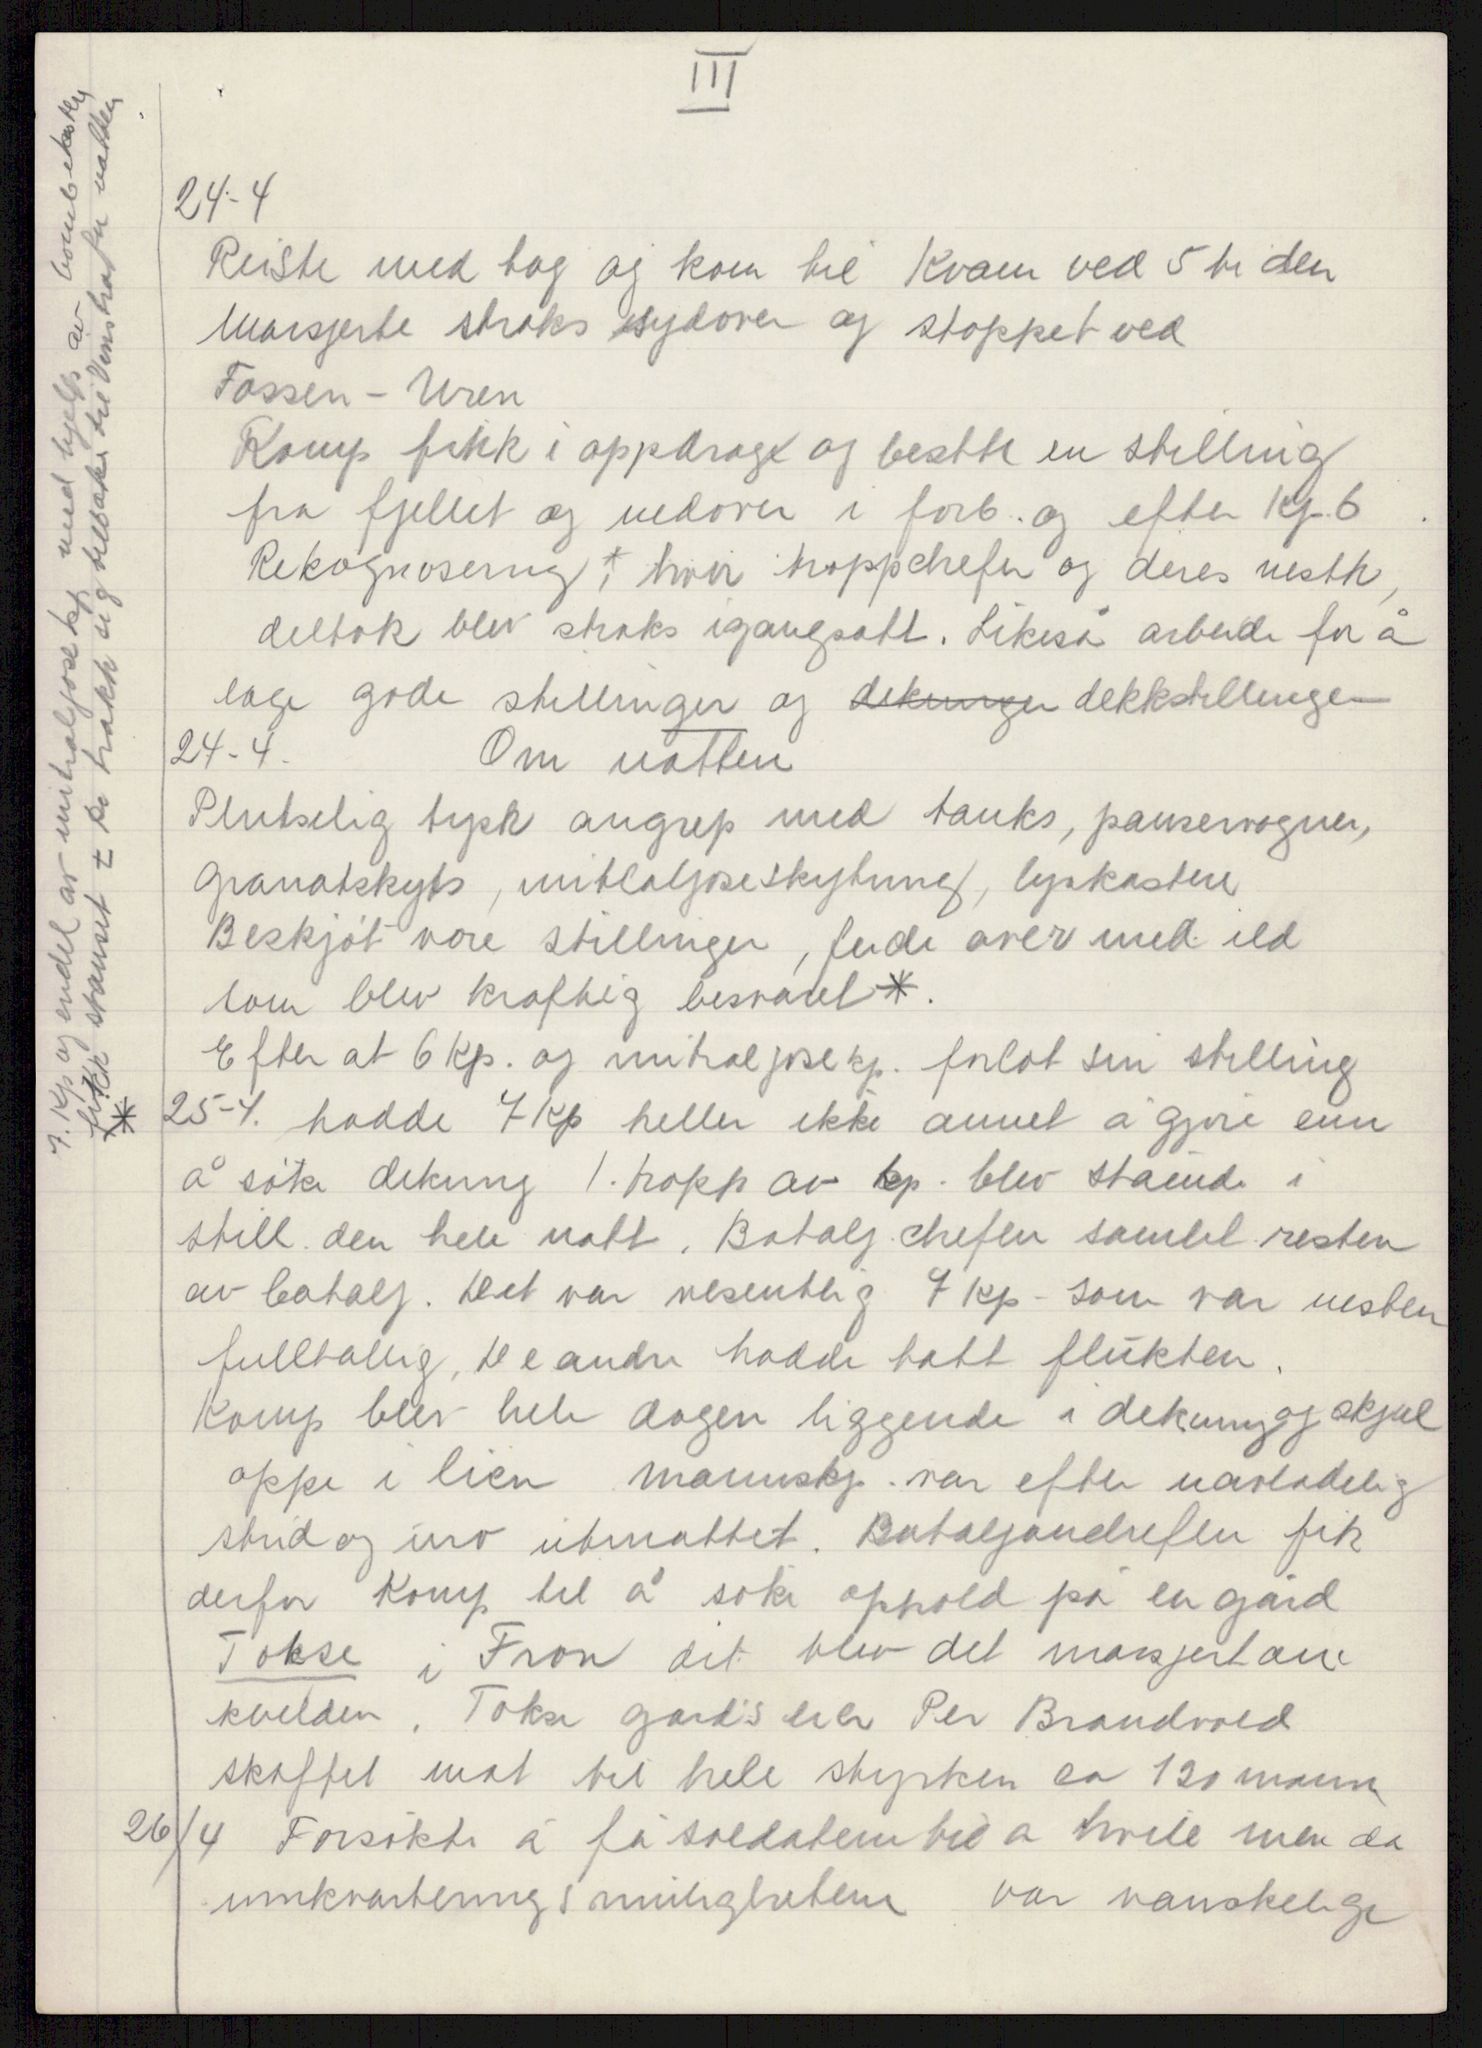 III
24-4
Reiste med tog og kom til Kvam ved 5 tiden
Marsjerte straks sydover og stoppet ved
Fossen - Uren
Komp fikk i oppdrage og besette en stilling
fra fjellet og nedover i forb. og efter Kp. 6
Rekognosering, i hvir troppchefer og deres nestk,
deltok blev straks igangsatt. Likeså arbeide for å
lage gode stillinger og dekkstillinger
24-4. Om natten
Plutselig tysk angrep med tanks, panservogner,
granatskyts, mitraljøseskytning, lyskastere
Beskjöt vore stillinger, over med ild
som blev kraftig besvaret *.
Efter at 6 Kp. og mitraljøse kp. forlot sin stilling
25-4. hadde 7 Kp heller ikke annet å gjøre enn
å söke dekning 1. tropp av kp. blev stående i
still. den hele natt. Batalj. chefen samlet resten
av batalj. Det var vesentlig 7 Kp - som var nesten
fulltallig, De andre hadde tatt flukten.
Komp blev hele dagen liggende i dekning og skjul
oppe i lien mannskp. var efter uavladelig
strid og uro utmattet. Bataljonchefen fik
derfor Komp til å söke opphold på en gård
Tokse i Fron dit blev det marsjert om
kvelden. Tokse gård's eier Per Brandvold
skaffet mat til hele styrken ca 120 mann
26/4 Forsökte å få soldatene til a hvile men da
innkvarterings mulighetene var vanskelige
7. Kp og endel av mitraljøse kp med hjelp av bombekastere
* fikk stanset - de trakk sig tilbake til Vinstra for natten